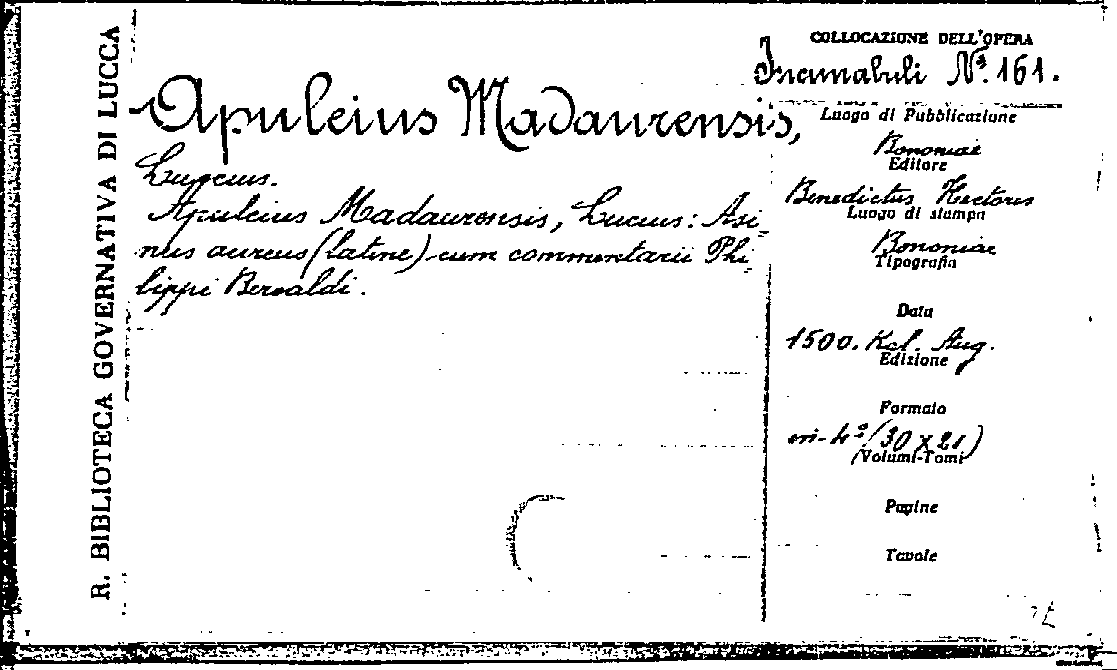 R. BIBLIOTECA GOVERNATIVA DI LUCCA
COLLOCAZIONE DELL'OPERA
Incunabuli No. 161.
Apuleius Madaurensis,
Lucius.
Apuleius Madaurensis, Lucius: Asi-
nus aureus (latine) cum commentarii Phi-
lippi Beroaldi.
Luogo di Pubblicazione
Bononiae
Editore
Benedictus Hectoris
Luogo di stampa
Bononiae
Tipografia
Data
1500. Kal. Aug.
Edizione
Formato
in-4º (30 x 21)
(Volumi-Tomi)
Pagine
Tavole